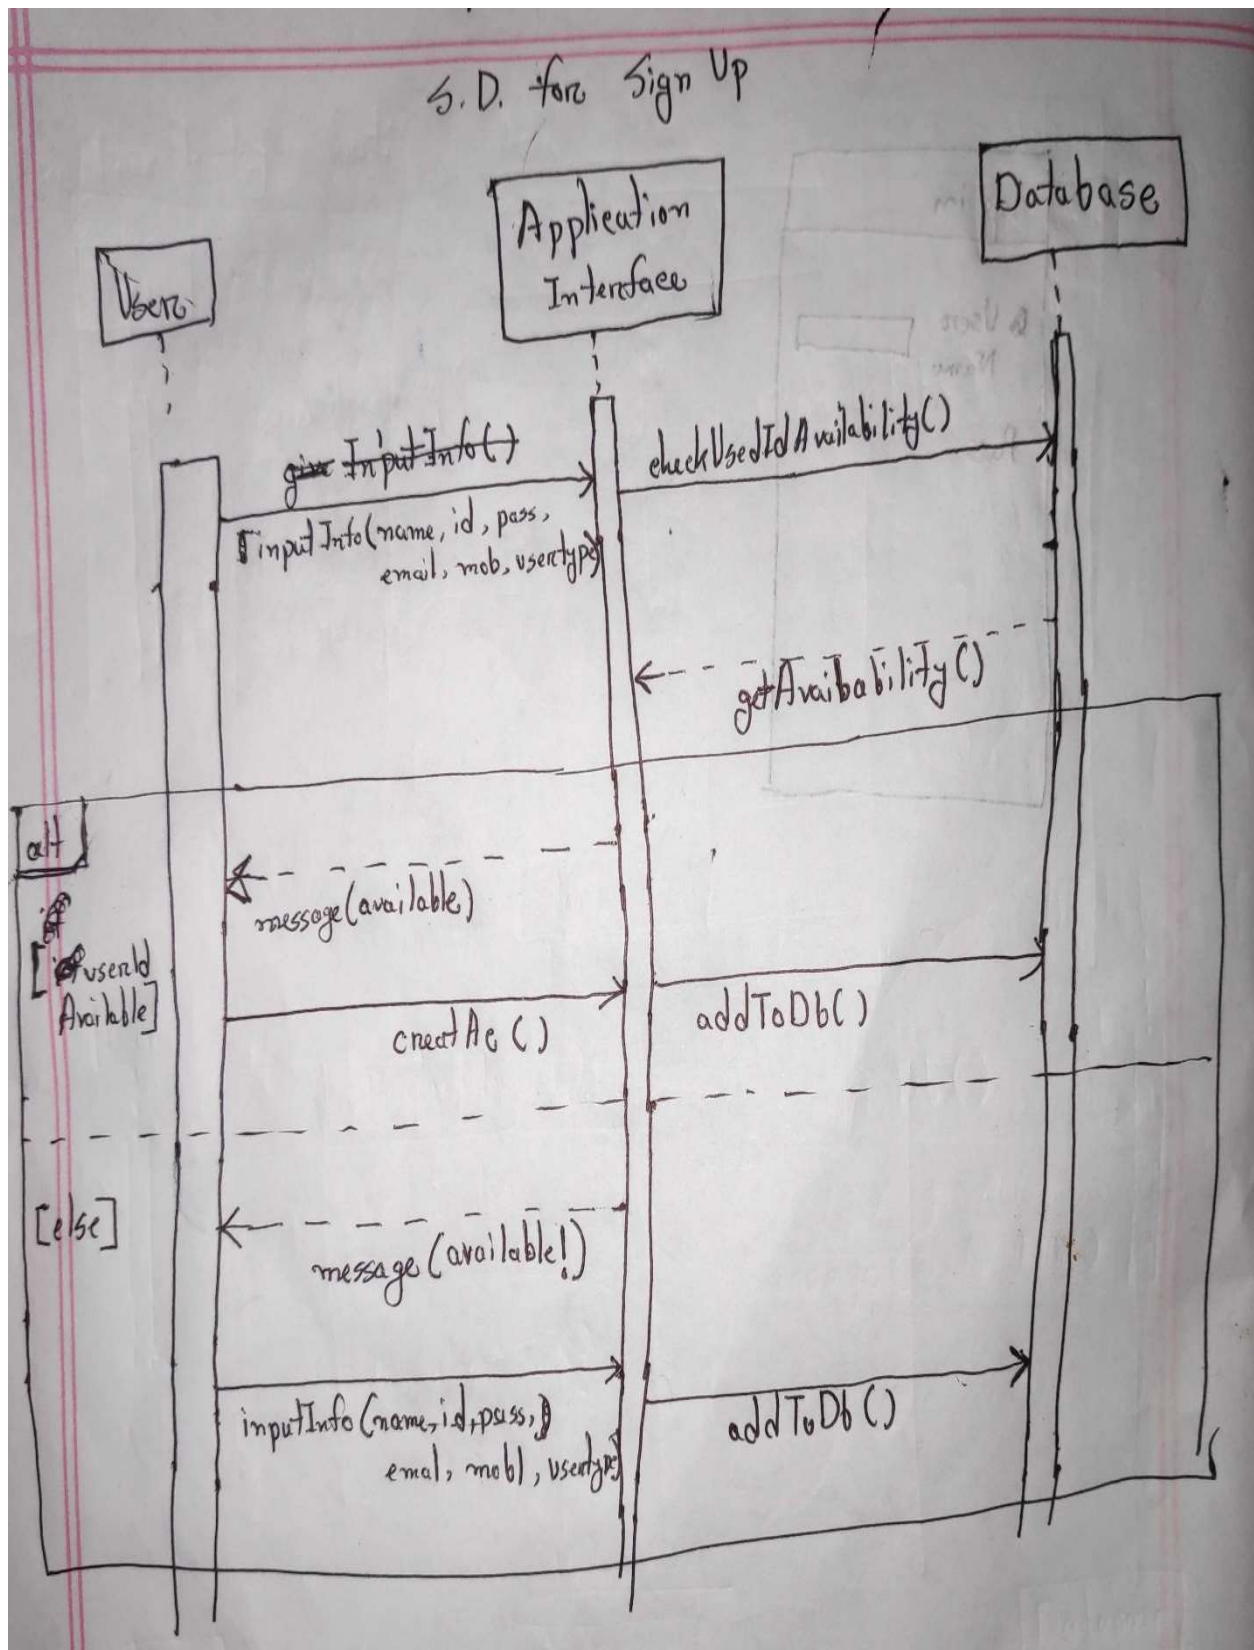 S.D. for Sign Up
User
Application
Interface
Database
give InputInfo()
inputInfo(name, id, pass,
email, mob, usertype)
checkUsedIdAvailability()
getAvaibability()
alt
message(available)
[if userId
Available]
creatAc()
addToDb()
[else]
message(available!)
inputInfo(name, id, pass,
emal, mobl, usertype)
addToDb()